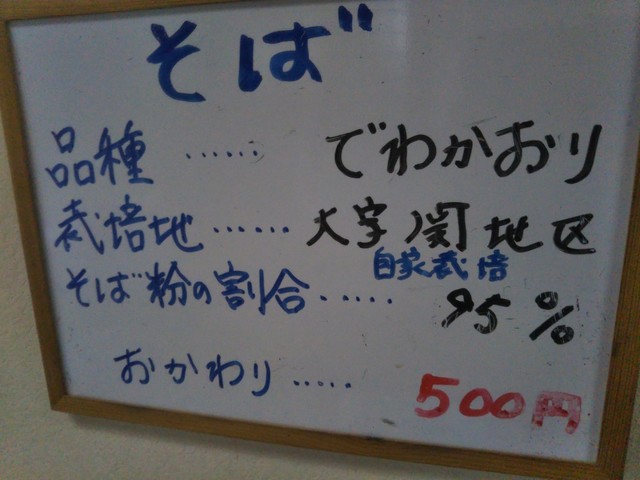 そば
品種 ...... でわかおり
栽培地 ...... 大字関地区
自家栽培
そば粉の割合 ..... 95%
おかわり ..... 500円